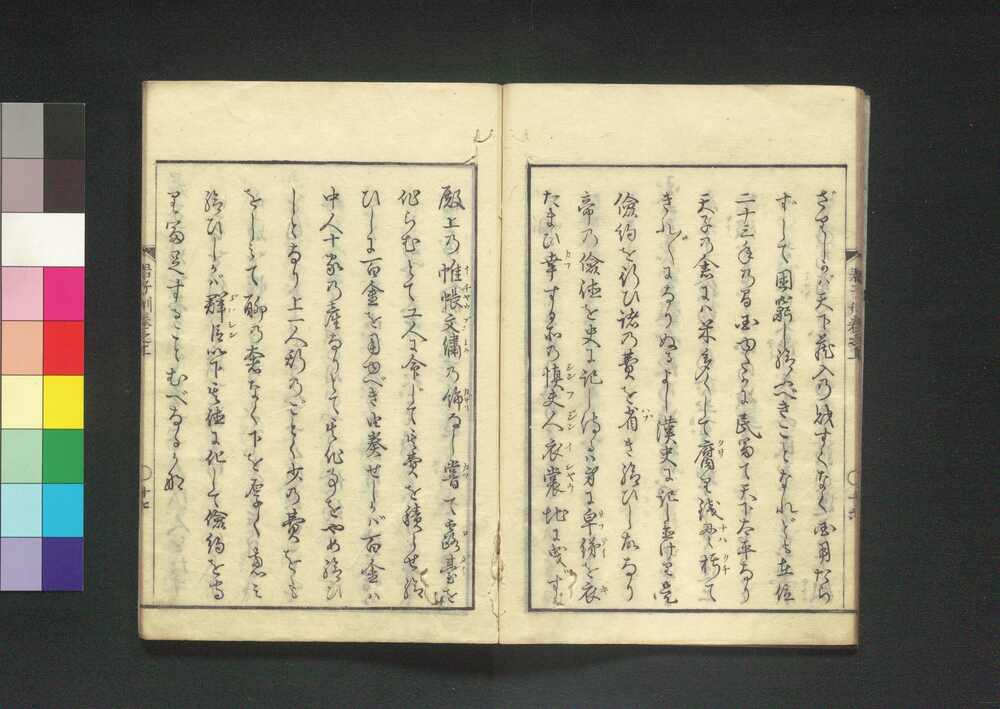 ざましかバ天下蔵入の財すくなく国用たら
ずして困窮し給ふべきことなれども在位
二十三年の間国ゆたかに民富て天下太平なり
天子の倉にハ米多くして腐り銭の縄ハ朽て
きれ〴〵になりぬるよし漢史に記し置けり是
倹約を行ひ諸の費を省き給ひし故なり
帝の倹徳を史に記し侍るハ身に皁綈を衣
たまひ幸する所の慎夫人衣裳地に曳ず
殿上の帷帳文繍の飾なし嘗て露台を
作らむとて工人に命じて其費を積らせ給
ひしに百金を用ゆべきと奏せしかバ百金ハ
中人十家の産なりとて其作事をやめ給ひ
しとなり上一人かくのごとく少の費をも
をしみて聊の奢なく下を厚く恵ミ
給ひしかバ群臣以下其徳に化して倹約を守
り富足することむべなるかな